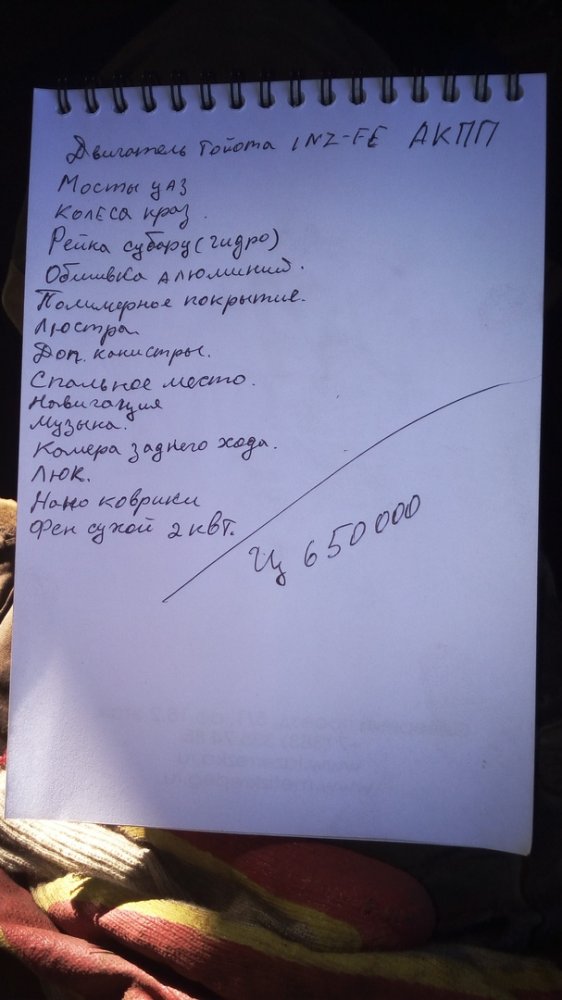 Двигатель Тойота 1NZ-FE АКПП
Мосты УАЗ
Колёса краз.
Рейка субару (гидро)
Обшивка алюминий.
Полимерное покрытие.
Люстра.
Доп. канистры.
Спальное место.
Навигация
Музыка.
Камера заднего хода.
Люк.
Нано коврики
Фен сухой 2 квт.
Ц 650000